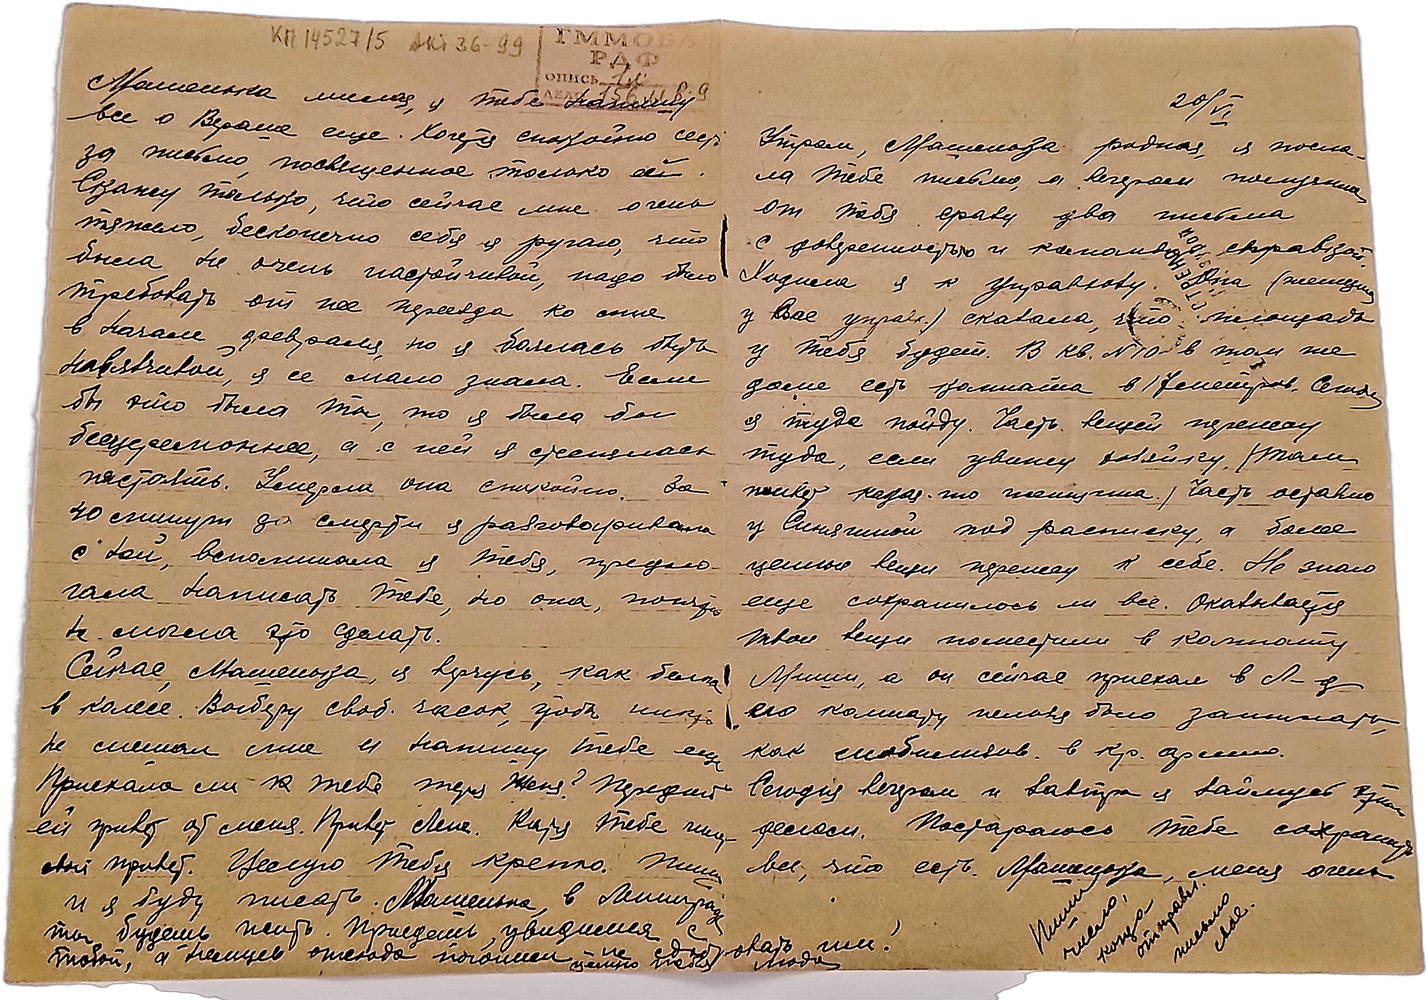 КП 14527/5 Акт 36-99
ГММОБЛ
РАФ
опись 1л
дело 156
Машенька милая, я тебе напишу
все о Верочке еще. Когда спокойно сесть
за письмо, посвященное только ей.
Скажу только, что сейчас мне очень
тяжело, бесконечно себя я ругаю, что
была не очень настойчивой, надо было
требовать от нее переезда ко мне
в начале февраля, но я боялась быть
навязчивой, я ее мало знала. Если
бы это была ты, то я была бы
бесцеремоннее, а с ней я стеснялась
настоять. Умерла она спокойно. За
40 минут до смерти я разговаривала
с ней, вспоминала я тебя, предла-
гала написать тебе, но она,
не смогла это сделать.
Сейчас, Машенька, я верчусь, как белка
в колесе. Выберу своб. часок, чтобы никто
не мешал мне и напишу тебе еще
Приехала ли к тебе тетя Женя? Передай
ей привет от меня. Привет Лене. Катя тебе шлет
свой привет. Целую тебя крепко. Пиши
и я буду писать. Машенька, в Ленинграде
ты будешь жить. Приедешь, увидишься с
тобой, а немцев отсюда погоним не
20/VI
Утром, Машенька родная, я посла-
ла тебе письмо, а вечером получила
от тебя сразу два письма
с доверенностью и
Ходила я к управхозу. Она (женщина
у Вас управ.) сказала, что площадь
у тебя будет. В кв. N10 в том же
доме есть комната в 17 метров. Сегодня
я туда пойду. Часть вещей перенесу
туда, если увижу хозяйку. (Там
живет какая-то женщина.) Часть оставлю
у Синягиной под расписку, а более
ценные вещи перенесу к себе. Не знаю
еще сохранилось ли все. Оказывается
твои вещи поместили в комнату
Миши, а он сейчас приехал в Л-д
его комнату нельзя было занимать,
как мобилизов. в кр. армию.
Сегодня вечером и завтра я займусь этим
делом. Постараюсь тебе сохранить
все, что есть. Машенька, меня очень
Пиши
число,
когда
отправл.
письмо
мое.